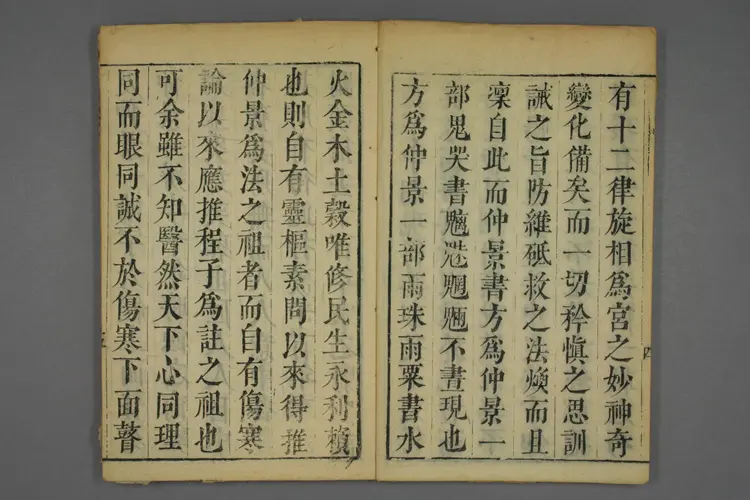 有十二律旋相爲宮之妙神奇
變化備矣而一切矜愼之思訓
誡之旨防維砥救之法煥而且
凜自此而仲景書方爲仲景一
部鬼哭書魑魅魍魎不晝現也
方爲仲景一部雨珠雨粟書水
火金木土榖唯修民生永利賴
也則自有靈樞素問以來得推
仲景爲法之祖者而自有傷寒
論以來應推程子爲註之祖也
可余雖不知醫然天下心同理
同而眼同誠不於傷寒下面瞽
四
五